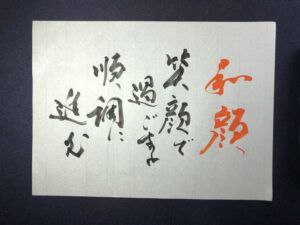 和顔
笑顔で
過ごすと
順調に
進む